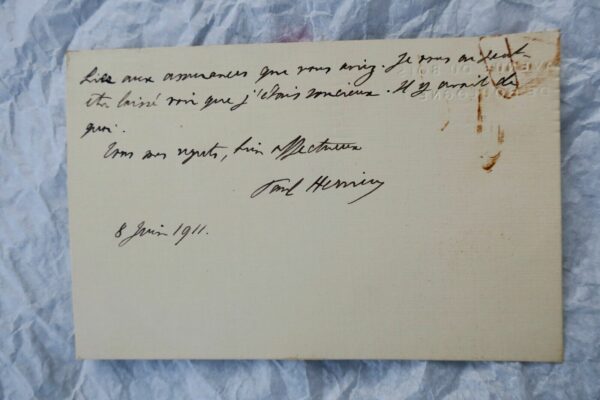 aux assurances que vous aviez. Je vous
laissé voir que j'étais soucieux. Il y avait de
quoi.
Tous mes regrets, bien affectueux
Paul Hervieu
8 Juin 1911.